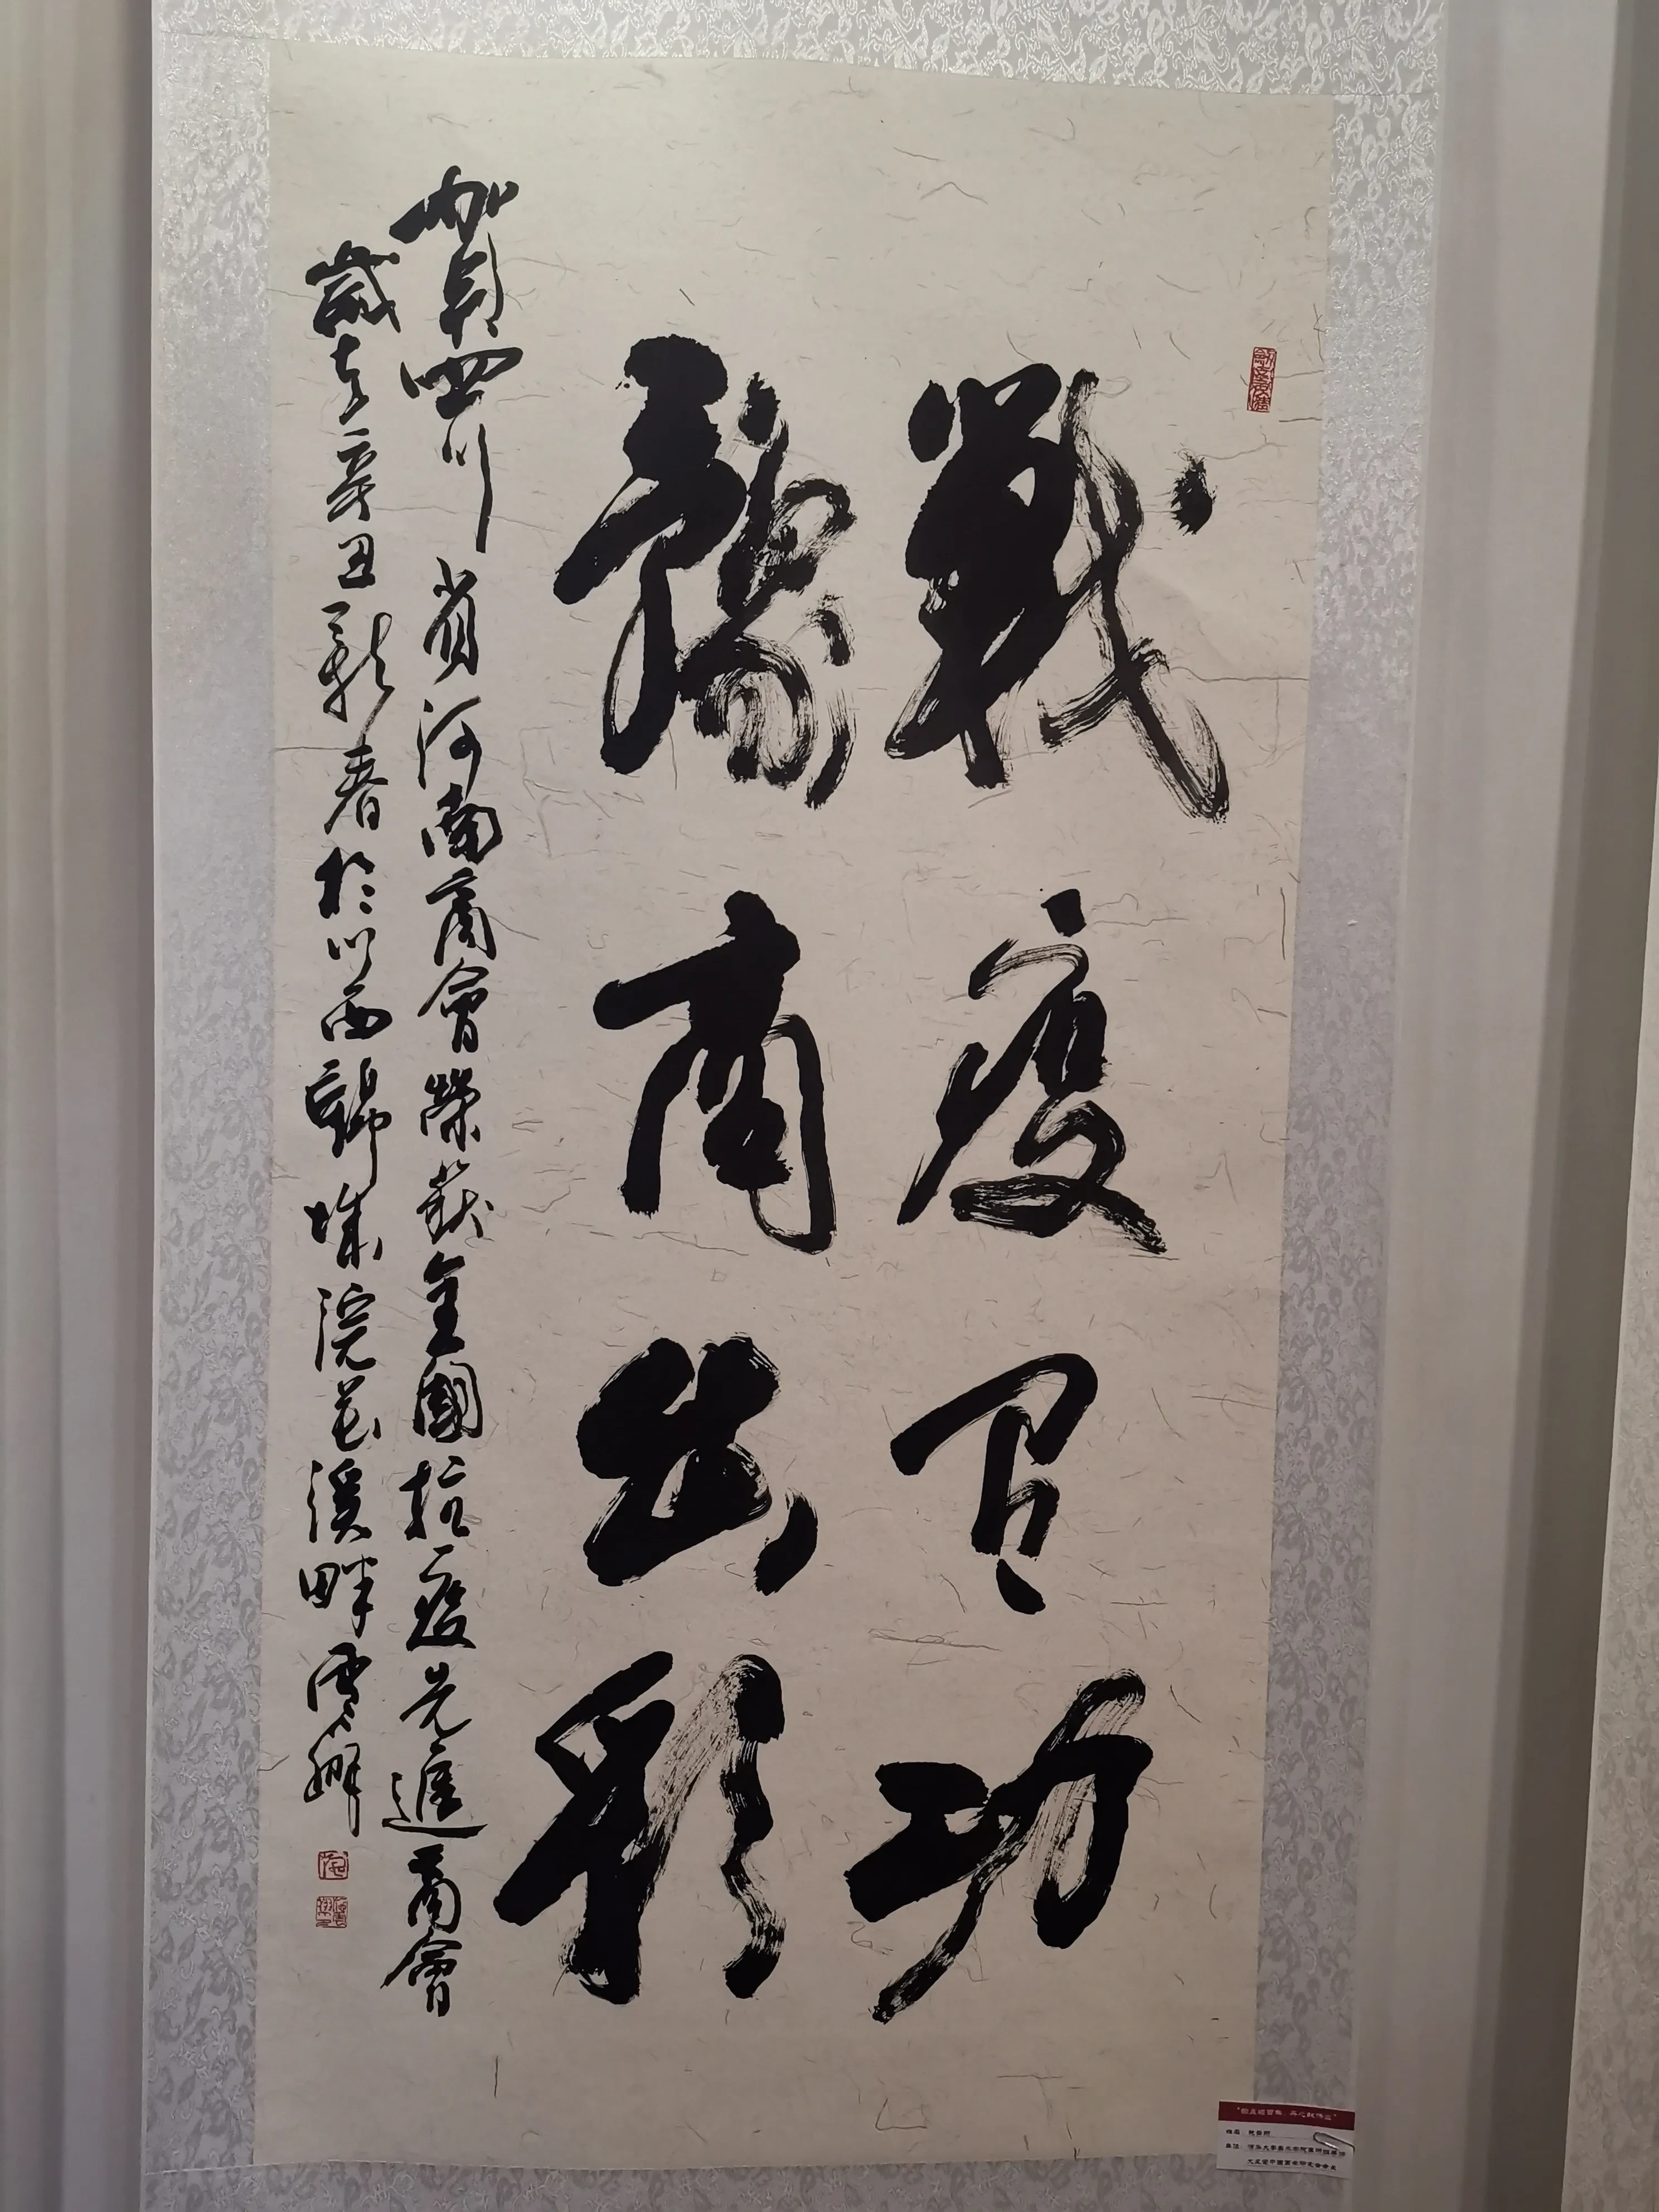 戰疫有功
豫商出彩
賀四川省河南商會榮獲全國抗疫先進商會
歲在辛丑新春於川西錦城浣花溪畔